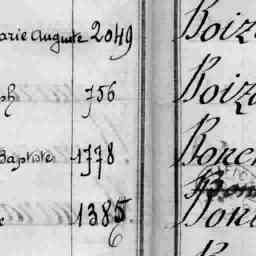 arie Auguste 2049 Boiz
ph 756 Boiz
Baptiste 1778 Bonc
e 1385 Bon
6